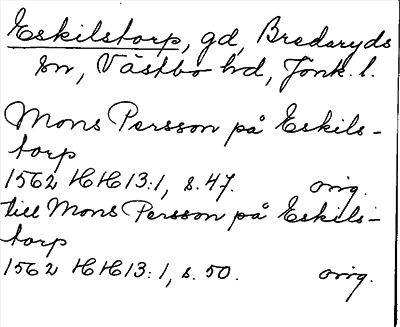 Eskilstorp, gd, Bredaryds
sn, Västbo hd, Jönk. l.
Mons Persson på Eskils-
torp
1562 HH 13:1, s. 47. orig.
till Mons Persson på Eskils-
torp
1562 HH 13:1, s. 50. orig.